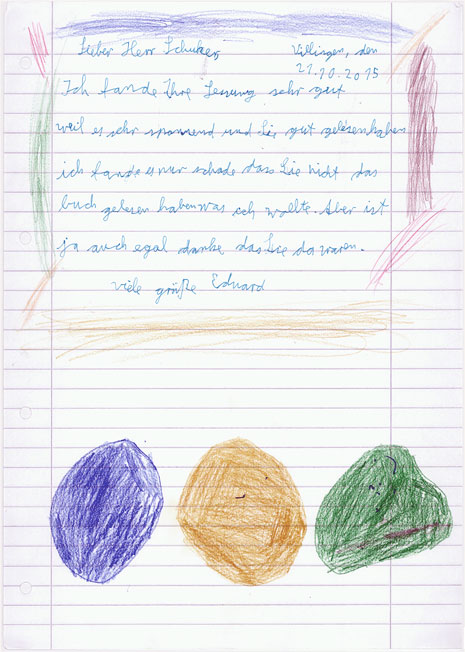 Lieber Herr Schuker, Villingen, den
21.10.2015
Ich fande Ihre Lesung sehr gut
weil es sehr spannend und Sie gut gelesen haben
ich fande es nur schade dass Sie nicht das
buch gelesen haben was ich wollte. Aber ist
ja auch egal danke das Sie da waren.
viele größe Eduard